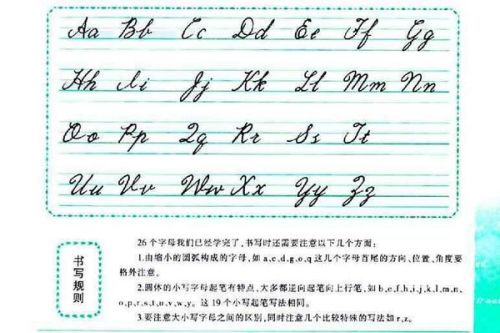 Aa Bb Cc Dd Ee Ff Gg
Hh Ii Jj Kk Ll Mm Nn
Oo Pp Qq Rr Ss Tt
Uu Vv Ww Xx Yy Zz
书写规则
26个字母我们已经学完了,书写时还需要注意以下几个方面:
1.由缩小的圆弧构成的字母,如a,c,d,g,o,q这几个字母首尾的方向、位置、角度要
格外注意。
2.圆体的小写字母起笔有特点,大多都逆向起笔向上行笔,如b,e,f,h,i,j,k,l,m,n,
o,p,r,s,t,u,v,w,y。这19个小写起笔写法相同。
3.要注意大小写字母之间的区别,同时注意几个比较特殊的写法如r,z。